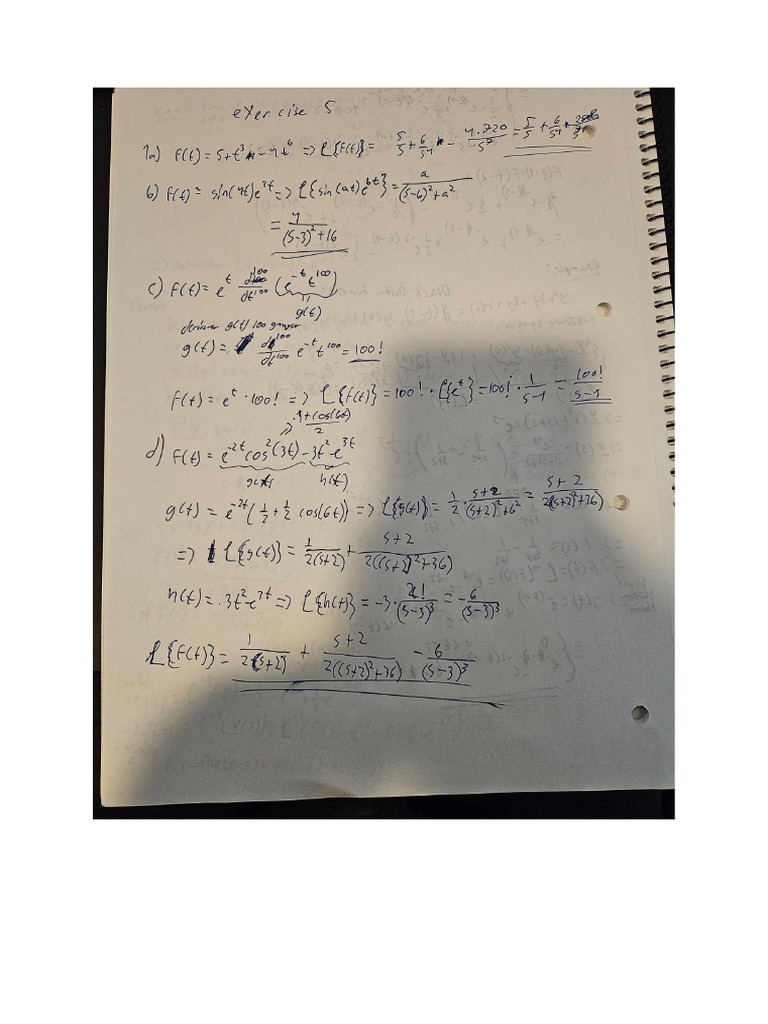 exercise 5
1a) f(t) = 5+t³ -4t⁶ => L{f(t)} = 5/s + 6/s⁴ - 4·720/s⁷ = 5/s + 6/s⁴
b) f(t) = sin(4t)e^{3t} => L{sin(at)e^{bt}} = a/((s-b)²+a²)
= 4/((s-3)²+16)
c) f(t) = e^t d^{100}/dt^{100} (e^{-t} t^{100})
g(t)
deriverer g(t) 100 ganger
g(t) = d^{100}/dt^{100} e^{-t} t^{100} = 100!
f(t) = e^t · 100! => L{f(t)} = 100! · L{e^t} = 100! · 1/(s-1) = 100!/(s-1)
=> 1+cos(6t)/2
d) f(t) = e^{-2t}cos²(3t) - 3t² e^{3t}
g(t) h(t)
g(t) = e^{-2t}(1/2 + 1/2 cos(6t)) => L{g(t)} = 1/2 · (s+2)/((s+2)²+6²) = (s+2)/(2((s+2)²+36))
=> L{g(t)} = 1/(2(s+2)) + (s+2)/(2((s+2)²+36))
h(t) = -3t² e^{3t} => L{h(t)} = -3 · 2!/(s-3)³ = -6/(s-3)³
L{f(t)} = 1/(2(s+2)) + (s+2)/(2((s+2)²+36)) - 6/(s-3)³